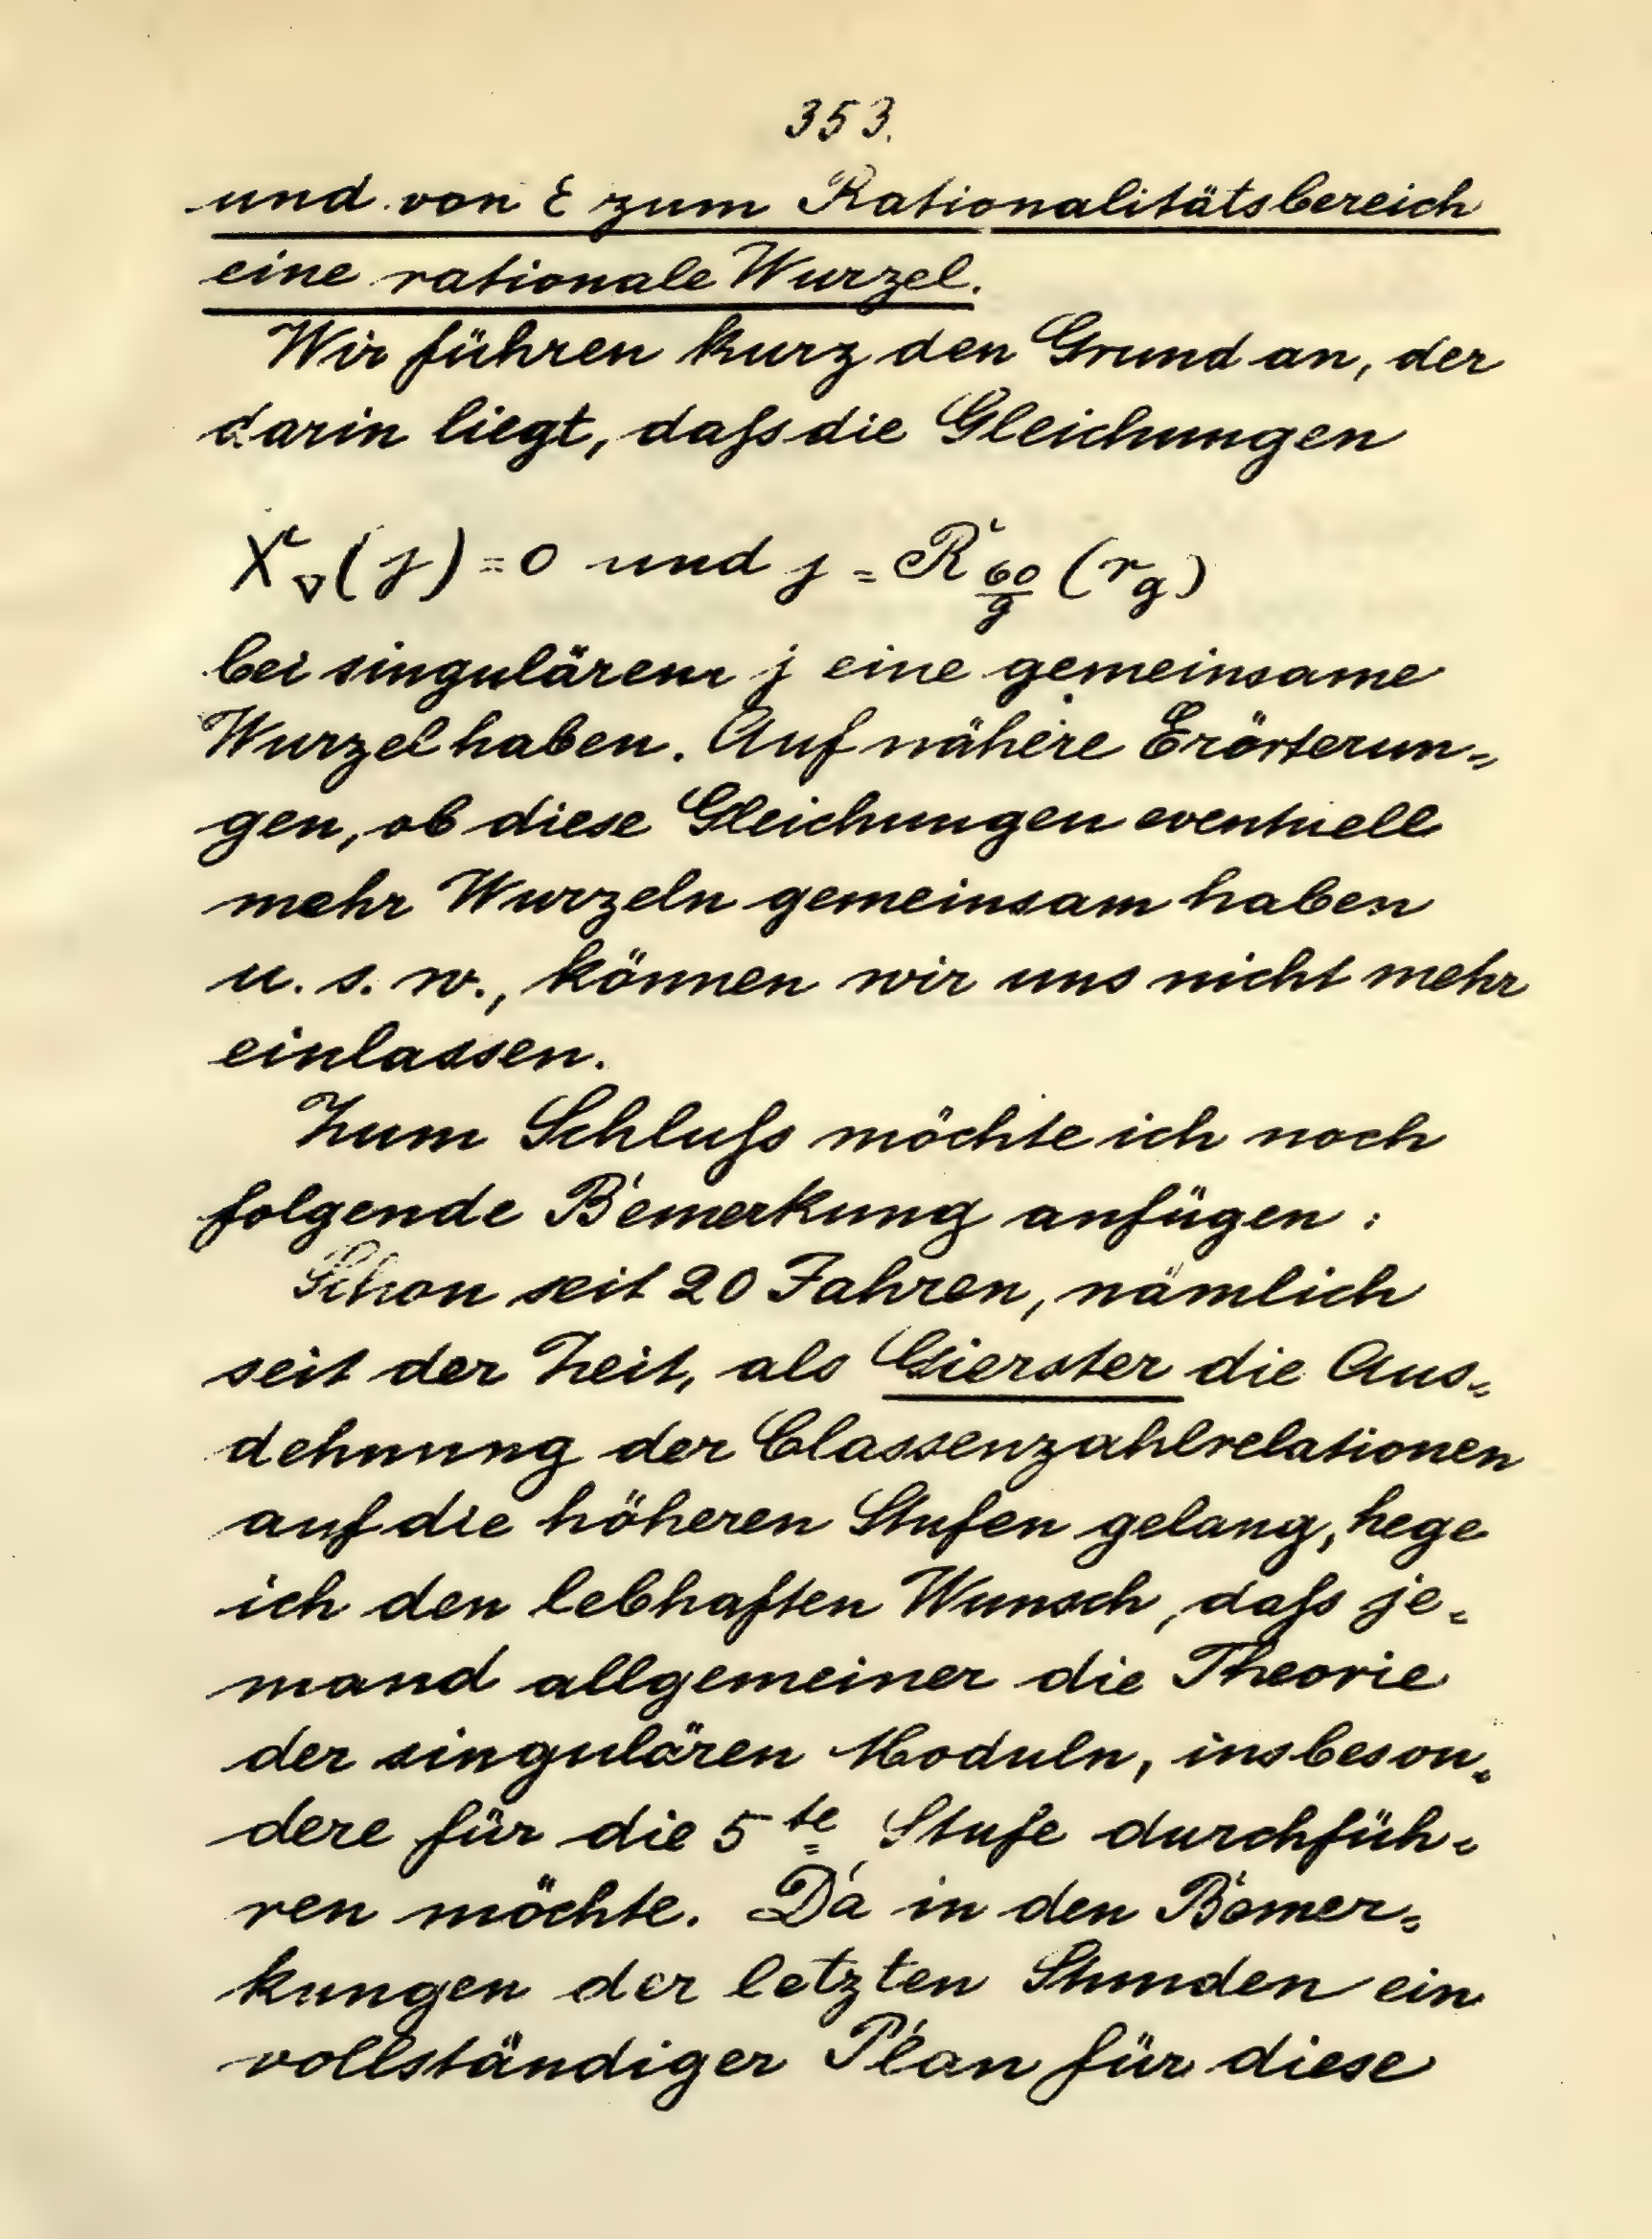 353.
und von ε zum Rationalitätsbereich
eine rationale Wurzel.
Wir führen kurz den Grund an, der
darin liegt, daſs die Gleichungen
X_∇(j) = 0 und j = R_{60/g} (r_g)
bei singulärem j eine gemeinsame
Wurzel haben. Auf nähere Erörterun-
gen, ob diese Gleichungen eventuell
mehr Wurzeln gemeinsam haben
u. s. w., können wir uns nicht mehr
einlassen.
Zum Schluſs möchte ich noch
folgende Bemerkung anfügen:
Schon seit 20 Jahren, nämlich
seit der Zeit, als Gierster die Aus-
dehnung der Classenzahlrelationen
auf die höheren Stufen gelang, hege
ich den lebhaften Wunsch, daſs je-
mand allgemeiner die Theorie
der singulären Moduln, insbeson-
dere für die 5te Stufe durchfüh-
ren möchte. Da in den Bemer-
kungen der letzten Stunden ein
vollständiger Plan für diese